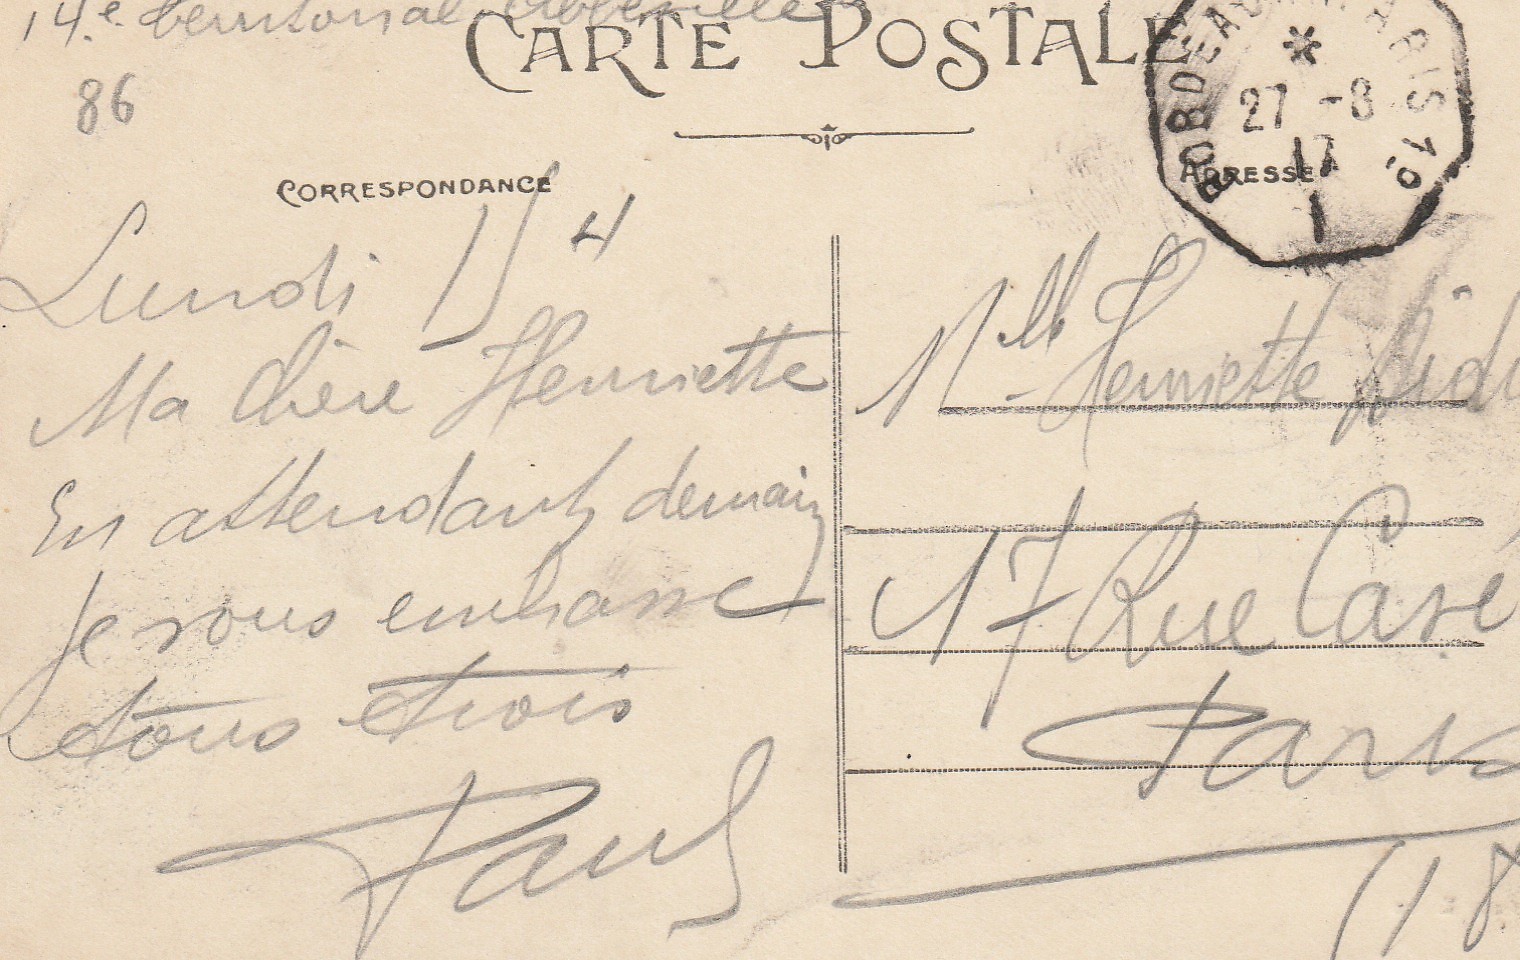 14.e territorial
CARTE POSTALE
BORDEAUX A PARIS 1°
27 -8
17
1
86
CORRESPONDANCE
ADRESSE
Lundi 4
Ma Chère Henriette
En attendant demain
Je vous embrasse
tous trois
Paul
Mlle Henriette
17 Rue
Paris